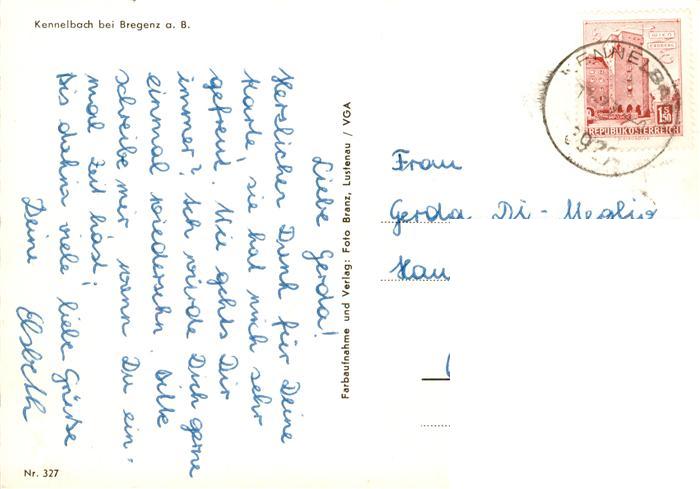 Kennelbach bei Bregenz a. B.
Liebe Gerda!
Herzlichen Dank für Deine
Karte, sie hat mich sehr
gefreut. Wie gehts Dir
immer? Ich würde Dich gerne
einmal wiedersehn. Bitte
schreibe mir wann Du ein-
mal Zeit hast!
Bis dahin viele liebe Grüße
Deine
Elsbeth
Nr. 327
Farbaufnahme und Verlag: Foto Branz, Lustenau / VGA
KENNELBA
S 1.50
REPUBLIK ÖSTERREICH
Frau
Gerda Di-Meglio